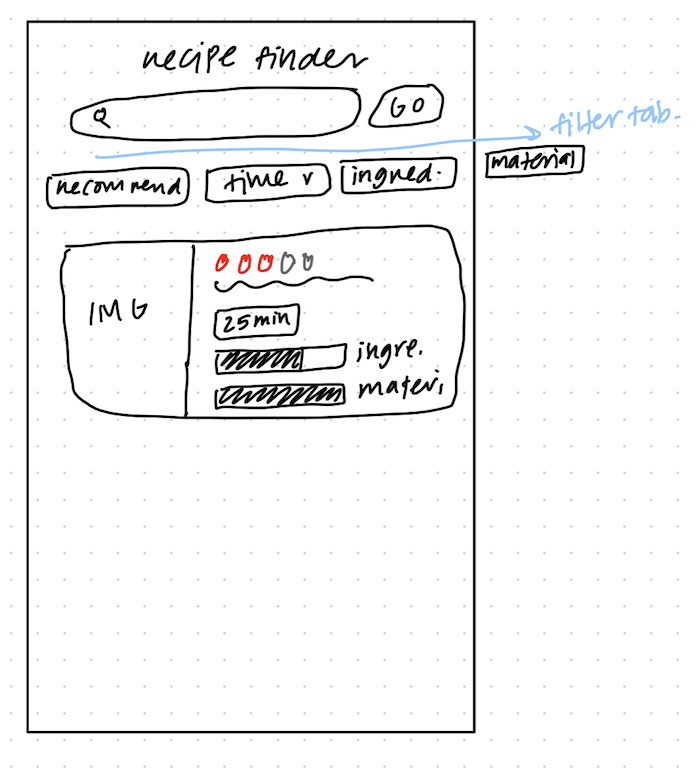 recipe finder
GO
filter tab.
recommend
time v
ingred.
material
IMG
25min
ingre.
materi.